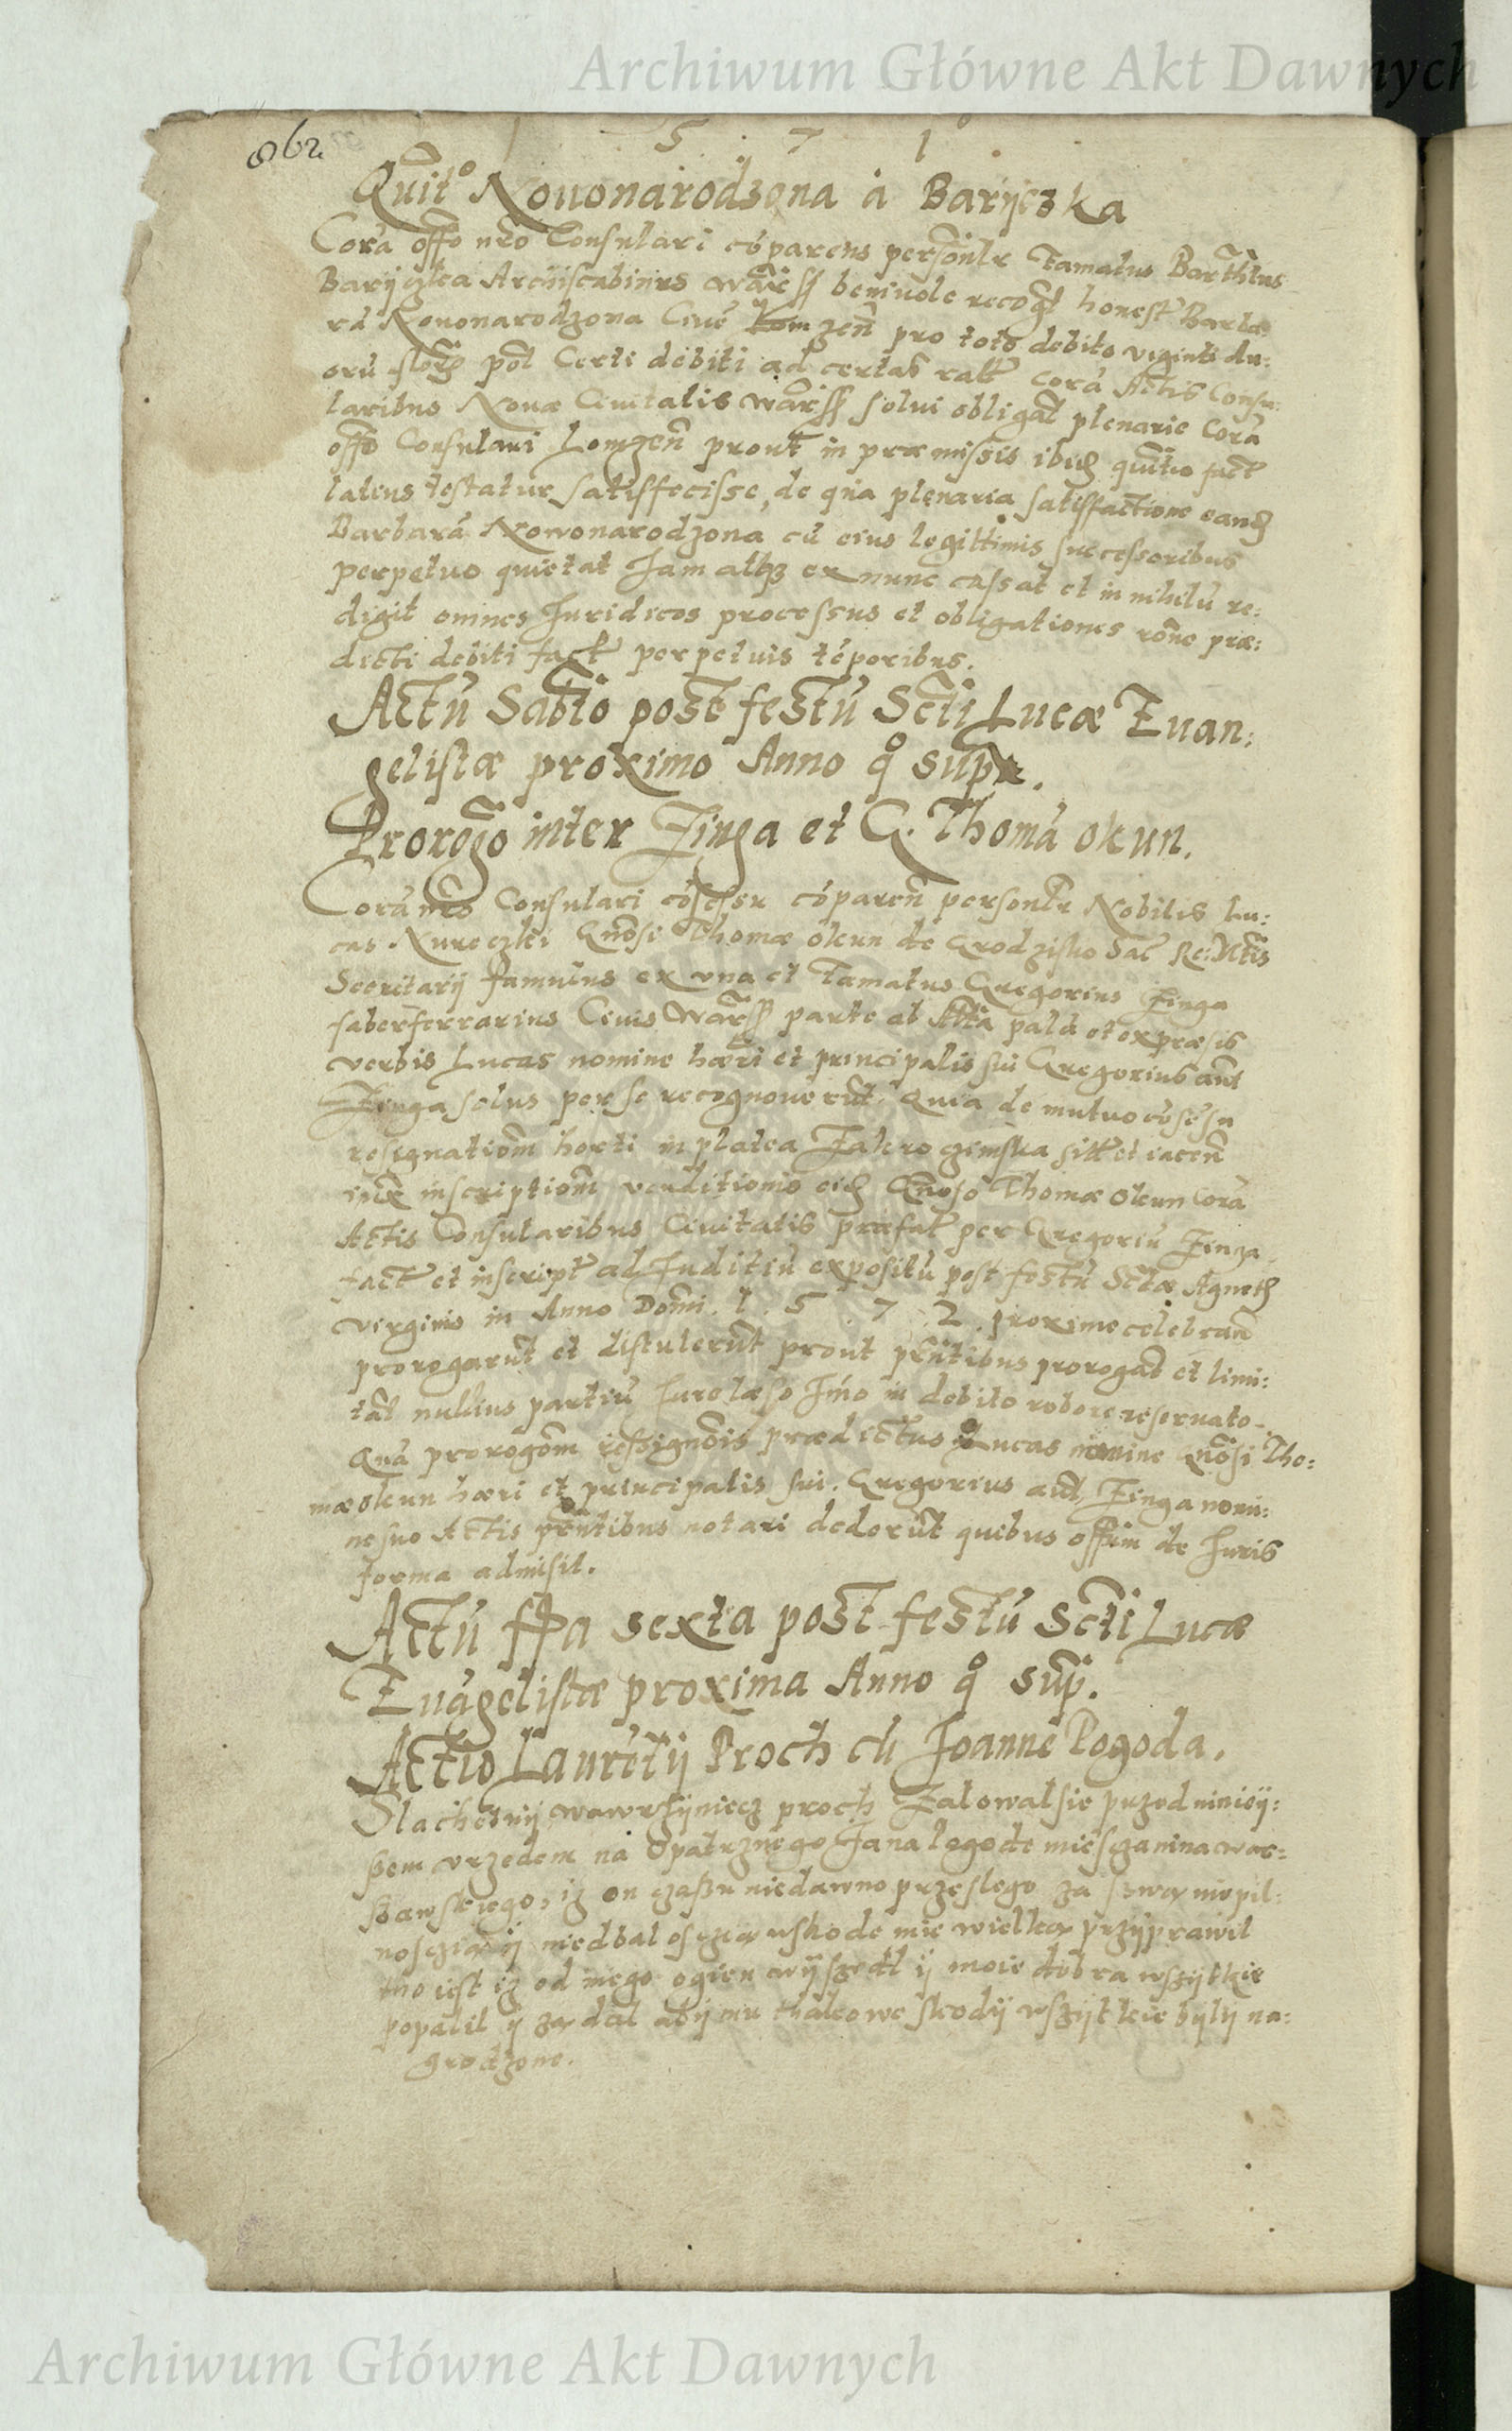 Archiwum Główne Akt Dawnych
862
1 5 7 1
Quit° Nouonarodzona a Baryczka
Corā offō nrō Consulari cōparens personlr famatus Barthlus
Baryczka Archiscabinus Warss beniuole recogt honestᵉ Barba
rā Nouonarodzona Ciuē Lomzeñ pro toto debito viginti du:
orū flor pol Certi debiti ad certas ratᵉ corā Actis Consu:
laribus Nouæ Ciuitatis Warss solui obligat plenarie Corā
offō Consulari Lomzeñ prout in præmissis ibid fact
latius testatur satisfecisse, de qua plenaria satisfactione eand
Barbarā Nowonarodzona cū eius legittimis successoribus
perpetuo quietat Jam atqz ex nunc cassat et in nihilū re:
digit omnes Juridicos processus et obligationes rōne præ:
dicti debiti factᵉ perpetuis tēporibus.
Actū Sabtō post festū Scti Lucæ Euan:
gelistæ proximo Anno q° supra.
Prorogō inter Finga et G. Thomā Okun.
Corā nrō Consulari cōsessu cōpareñ personlr Nobilis Lu:
cas Kureczki Gnōsi Thomæ Okun de Grodzisko Sac Re: Mtis
Secritarij famulus ex vna et famatus Gregorius Finga
faberferrarius Ciuis Warss parte ab altā palā et expræsis
verbis Lucas nomine hæri et principalis sui Gregorius aūt
Finga solus per se recognouerūt. Quia de mutuo cōsēsu
resignatiōm horti in platea Zakroczimska sitᵉ et iaceñ
iux inscriptiōm venditionis eid Gnoso Thomæ Okun Corā
Actis Consularibus Ciuitatis præfatᵉ per Gregoriū Finga
factᵉ et inscriptᵉ ad Juditiū expositū post festū Sctæ Agneth
virginis in Anno Domi. 1 5 7 2 proxime celebrañ
prorogarūt et distulerūt prout pñtibus prorogāt et limi:
tāt nullius partiū Jure læso Jmō in debito robore reseruato.
Quā prorogōm resignōis prædictus Lucas nomine Gnōsi Tho:
mæ Okun hæri et principalis sui. Gregorius aūt. Finga nomi:
ne suo Actis pñtibus notari dederūt quibus offim de Juris
forma admisit.
Actū fria sexta post festū Scti Lucæ
Euāgelistæ proxima Anno q° sup.
Actio Laurētij Proch cū Joanne Pogoda.
Slachetnij wawrzijniecz proch Zalowalsie przed nineij:
szem vrzedem na Opatrznego Jana Pogode miesczanina war:
szawskiego, iz on czaszu niedawno przeslego za swą niepil:
nosczią ij niedbalosczą wskode mie wielką przijprawil
tho iest iz od niego ogien wijszedl ij moie dobra wszijtkie
popalil ij ządal abij mu thakowe skodij wszijtkie bijlij na:
grodzone.
Archiwum Główne Akt Dawnych